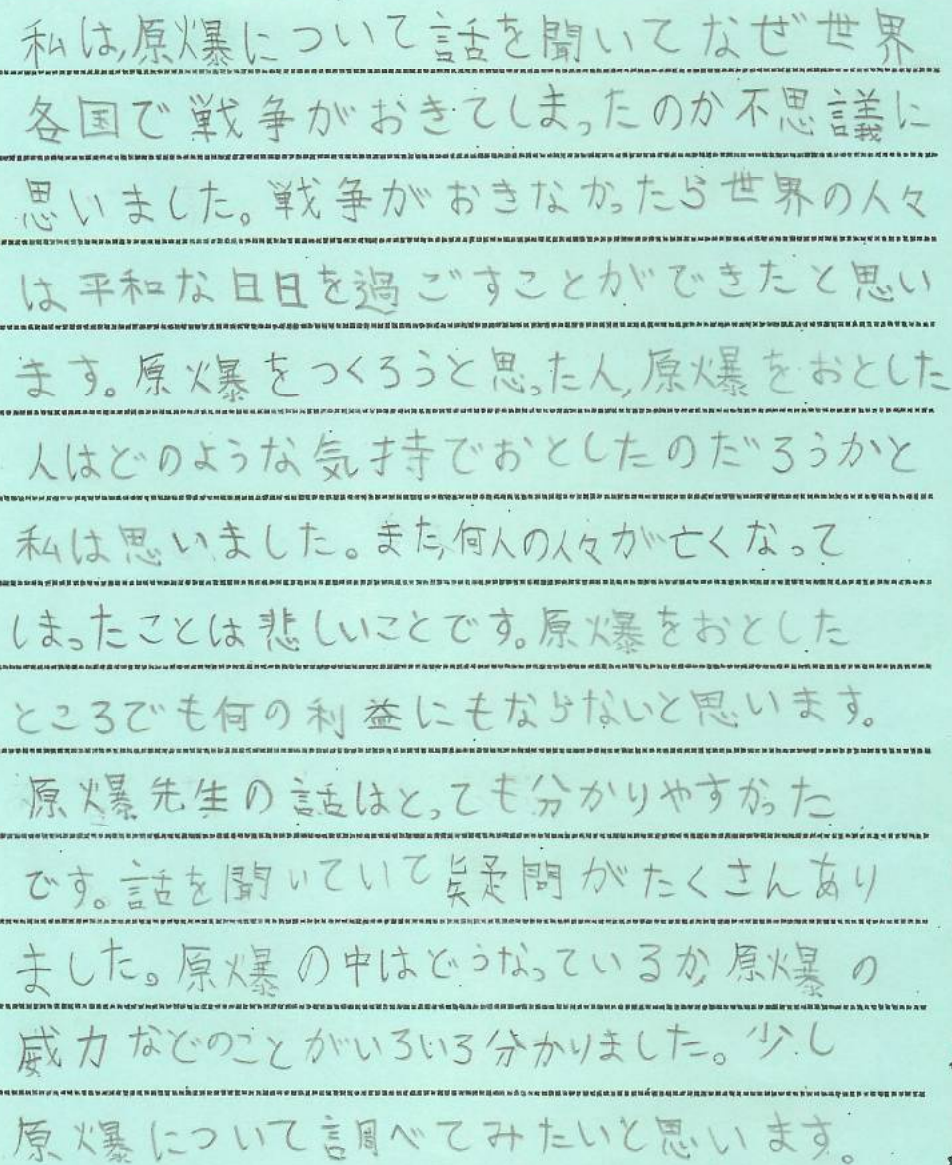 私は,原爆について話を聞いてなぜ世界
各国で戦争がおきてしまったのか不思議に
思いました。戦争がおきなかったら世界の人々
は平和な日日を過ごすことができたと思い
ます。原爆をつくろうと思った人,原爆をおとした
人はどのような気持でおとしたのだろうかと
私は思いました。また,何人の人々が亡くなって
しまったことは悲しいことです。原爆をおとした
ところでも何の利益にもならないと思います。
原爆先生の話はとっても分かりやすかった
です。話を聞いていて疑問がたくさんあり
ました。原爆の中はどうなっているか,原爆の
威力などのことがいろいろ分かりました。少し
原爆について調べてみたいと思います。